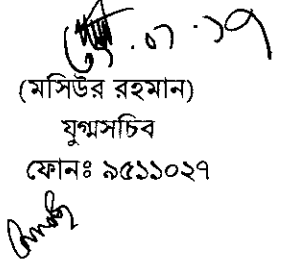 .০১.১৭
(মসিউর রহমান)
যুগ্মসচিব
ফোনঃ ৯৫১১০২৭